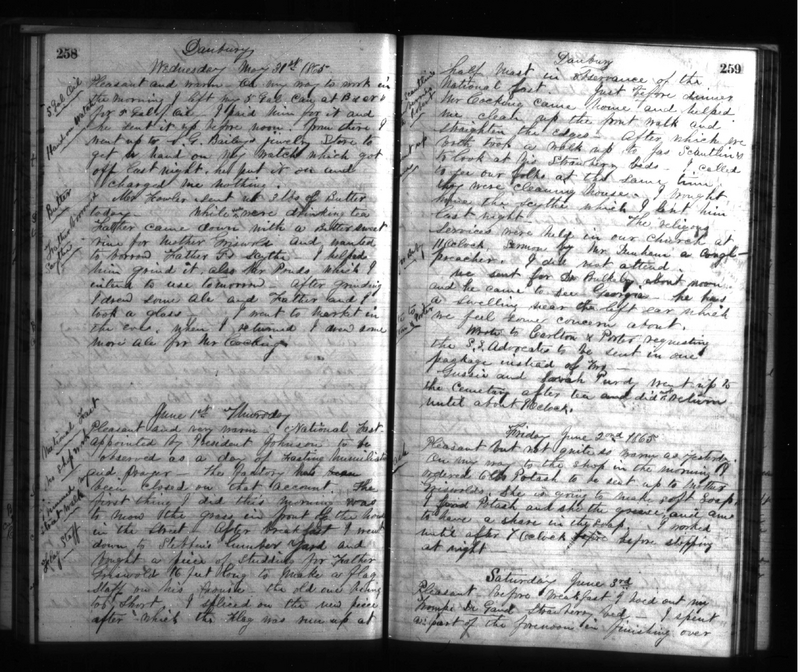 258
Danbury
Wednesday May 31st 1865
5 Gal Oil
Pleasant and warm - On my way to work in
the morning I left my 5 Gal. Can at
for 5 Gal Oil - I paid him for it and
he sent it up before noon. From there I
Hand on Watch
went up to Bailey's jewelry Store to
get a hand on my Watch which got
off last night. he put it on and
charged me nothing.
Butter
Mrs Fowler sent us 3 lbs of Butter
today. While I were drinking tea
Father came down with a Bittersweet
vine for Mother Griswold and wanted
to borrow Father Scythe - I helped
him grind it also Mr Ponds which I
intend to use tomorrow - After grinding
I drew some ale and Father and I
took a glass. I went to market in
the eve. When I returned I drew some
more ale for Mr Cocking.
June 1st Thursday
National Fast
Pleasant and very warm - National Fast
appointed by President Johnson to be
observed as a day of Fasting Humiliation
No Shop work
and prayer - the Factory has been
been closed on that account. The
first thing I did this morning was
to mow the grass in front of the house
in the Street. After Breakfast I went
down to Lumber Yard and
bought a piece of Studding for Father
Flag Staff
Griswold 12 feet long to make a flag
Staff on his House the old one being
too short - I spliced on the new piece
after which the Flag was run up at
259
Danbury
half mast in observance of the
National Fast. Just before dinner
Mr Cocking came home and helped
me clean up the front walk and
straighten the edges - After which we
both took a walk up to Jas Scanthlin's
to look at his Strawberry beds - I called
to see our folks at the same time,
they were cleaning house. I brought
home the scythe which I lent him
last night. The religious
services were held in our Church at
11 oclock. Sermon by Mr
preacher. I did not attend
We sent for Dr Bulkley about noon
and he came to see Georgia - he has
a swelling near the left ear which
we feel some concern about.
Wrote to Carlton & Porter requesting
the S.S. Advocates to be sent in one
package instead of two -
Gussie and Sarah Purdy went up to
the Cemetery after tea and did not return
until about 8 oclock.
Friday June 2nd 1865
Pleasant but not quite as warm as yesterday.
On my way to the shop in the morning I
ordered Potash to be sent up to Mother
Griswolds. She is going to make soft Soap,
I found Potash and she the grease, and am
to have a share in the soap. I worked
until after 7 oclock before stopping
at night
Saturday June 3rd
Pleasant. Before breakfast I hoed out my
Strawberry bed - I spent
a part of the forenoon in finishing over